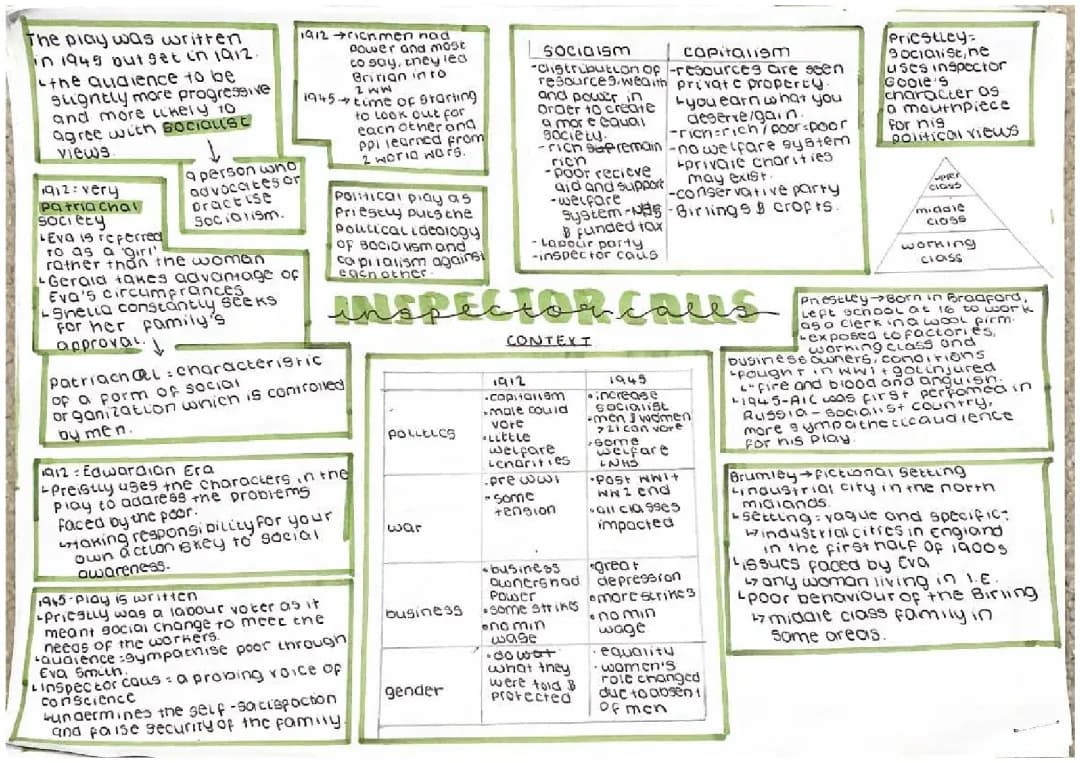 The play was written
in 1945 but set in 1912.
↳the audience to be
slightly more progressive
and more likely to
agree with socialist
views.
a person who
advocates or
practise
socialism.
1912 → rich men had
power and most
to say, they led
Britian into
2 WW
1945 → time of starting
to look out for
each other and
ppl learned from
2 world wars.
Political play as
Priestly puts the
political ideology
of socialism and
capitalism against
each other.
socialism
-distribution of
resources, wealth
and power in
order to create
a more equal
society.
-rich remain
rich
-poor recieve
aid and support
-welfare
system-NHS
& funded tax
-Labour party
-inspector calls
capitalism
-resources are seen
private property.
↳you earn what you
deserve/gain.
-rich=rich/poor=poor
-no welfare system
↳private charities
may exist.
-conservative party
-Birlings & crofts.
Priestley=
socialist, he
uses inspector
Goole's
character as
a mouthpiece
for his
political views
upper
class
middle
class
working
class
1912: very
patriachal
society
↳Eva is referred
to as a 'girl'
rather than the woman
↳Gerald takes advantage of
Eva's circumstances
↳Sheila constantly seeks
for her family's
approval.
patriachal: characteristic
of a form of social
organization which is controlled
by men.
1912: Edwardian Era
↳Preistly uses the characters in the
play to address the problems
faced by the poor.
↳taking responsibility for your
own action is key to social
awareness.
1945-play is written
↳Priestly was a labour voter as it
meant social change to meet the
needs of the workers.
↳audience: sympathise poor through
Eva Smith.
↳Inspector calls: a probing voice of
conscience
↳undermines the self-satisfaction
and false security of the family.
INSPECTOR CALLS
inspector calls
CONTEXT
1912 1945
politics
•capitalism
•male could
vote
•little
welfare
↳charities
•increase
socialist
•men & women
>21 can vote
•some
welfare
↳NHS
war
•pre WW1
•some
tension
•post WW1+
WW2 end
•all classes
impacted
business
•business
owners had
power
•some strikes
•no min
wage
•great
depression
•more strikes
•no min
wage
gender
•do wat
what they
were told &
protected
•equality
•women's
role changed
due to absent
of men
Priestley → Born in Bradford,
left school at 16 to work
as a clerk in a wool firm.
↳exposed to factories,
working class and
business owners, conditions
↳fought in WW1 + got injured
↳"fire and blood and anguish.
↳1945-AIC was first perfomed in
Russia - socialist country,
more sympathetic audience
for his play.
Brumley → fictional setting
↳industrial city in the north
midlands.
↳setting: vague and specific:
↳industrial cities in England
in the first half of 1900s
↳issues faced by Eva
↳any woman living in I.E.
↳poor behaviour of the Birling
↳middle class family in
some areas.